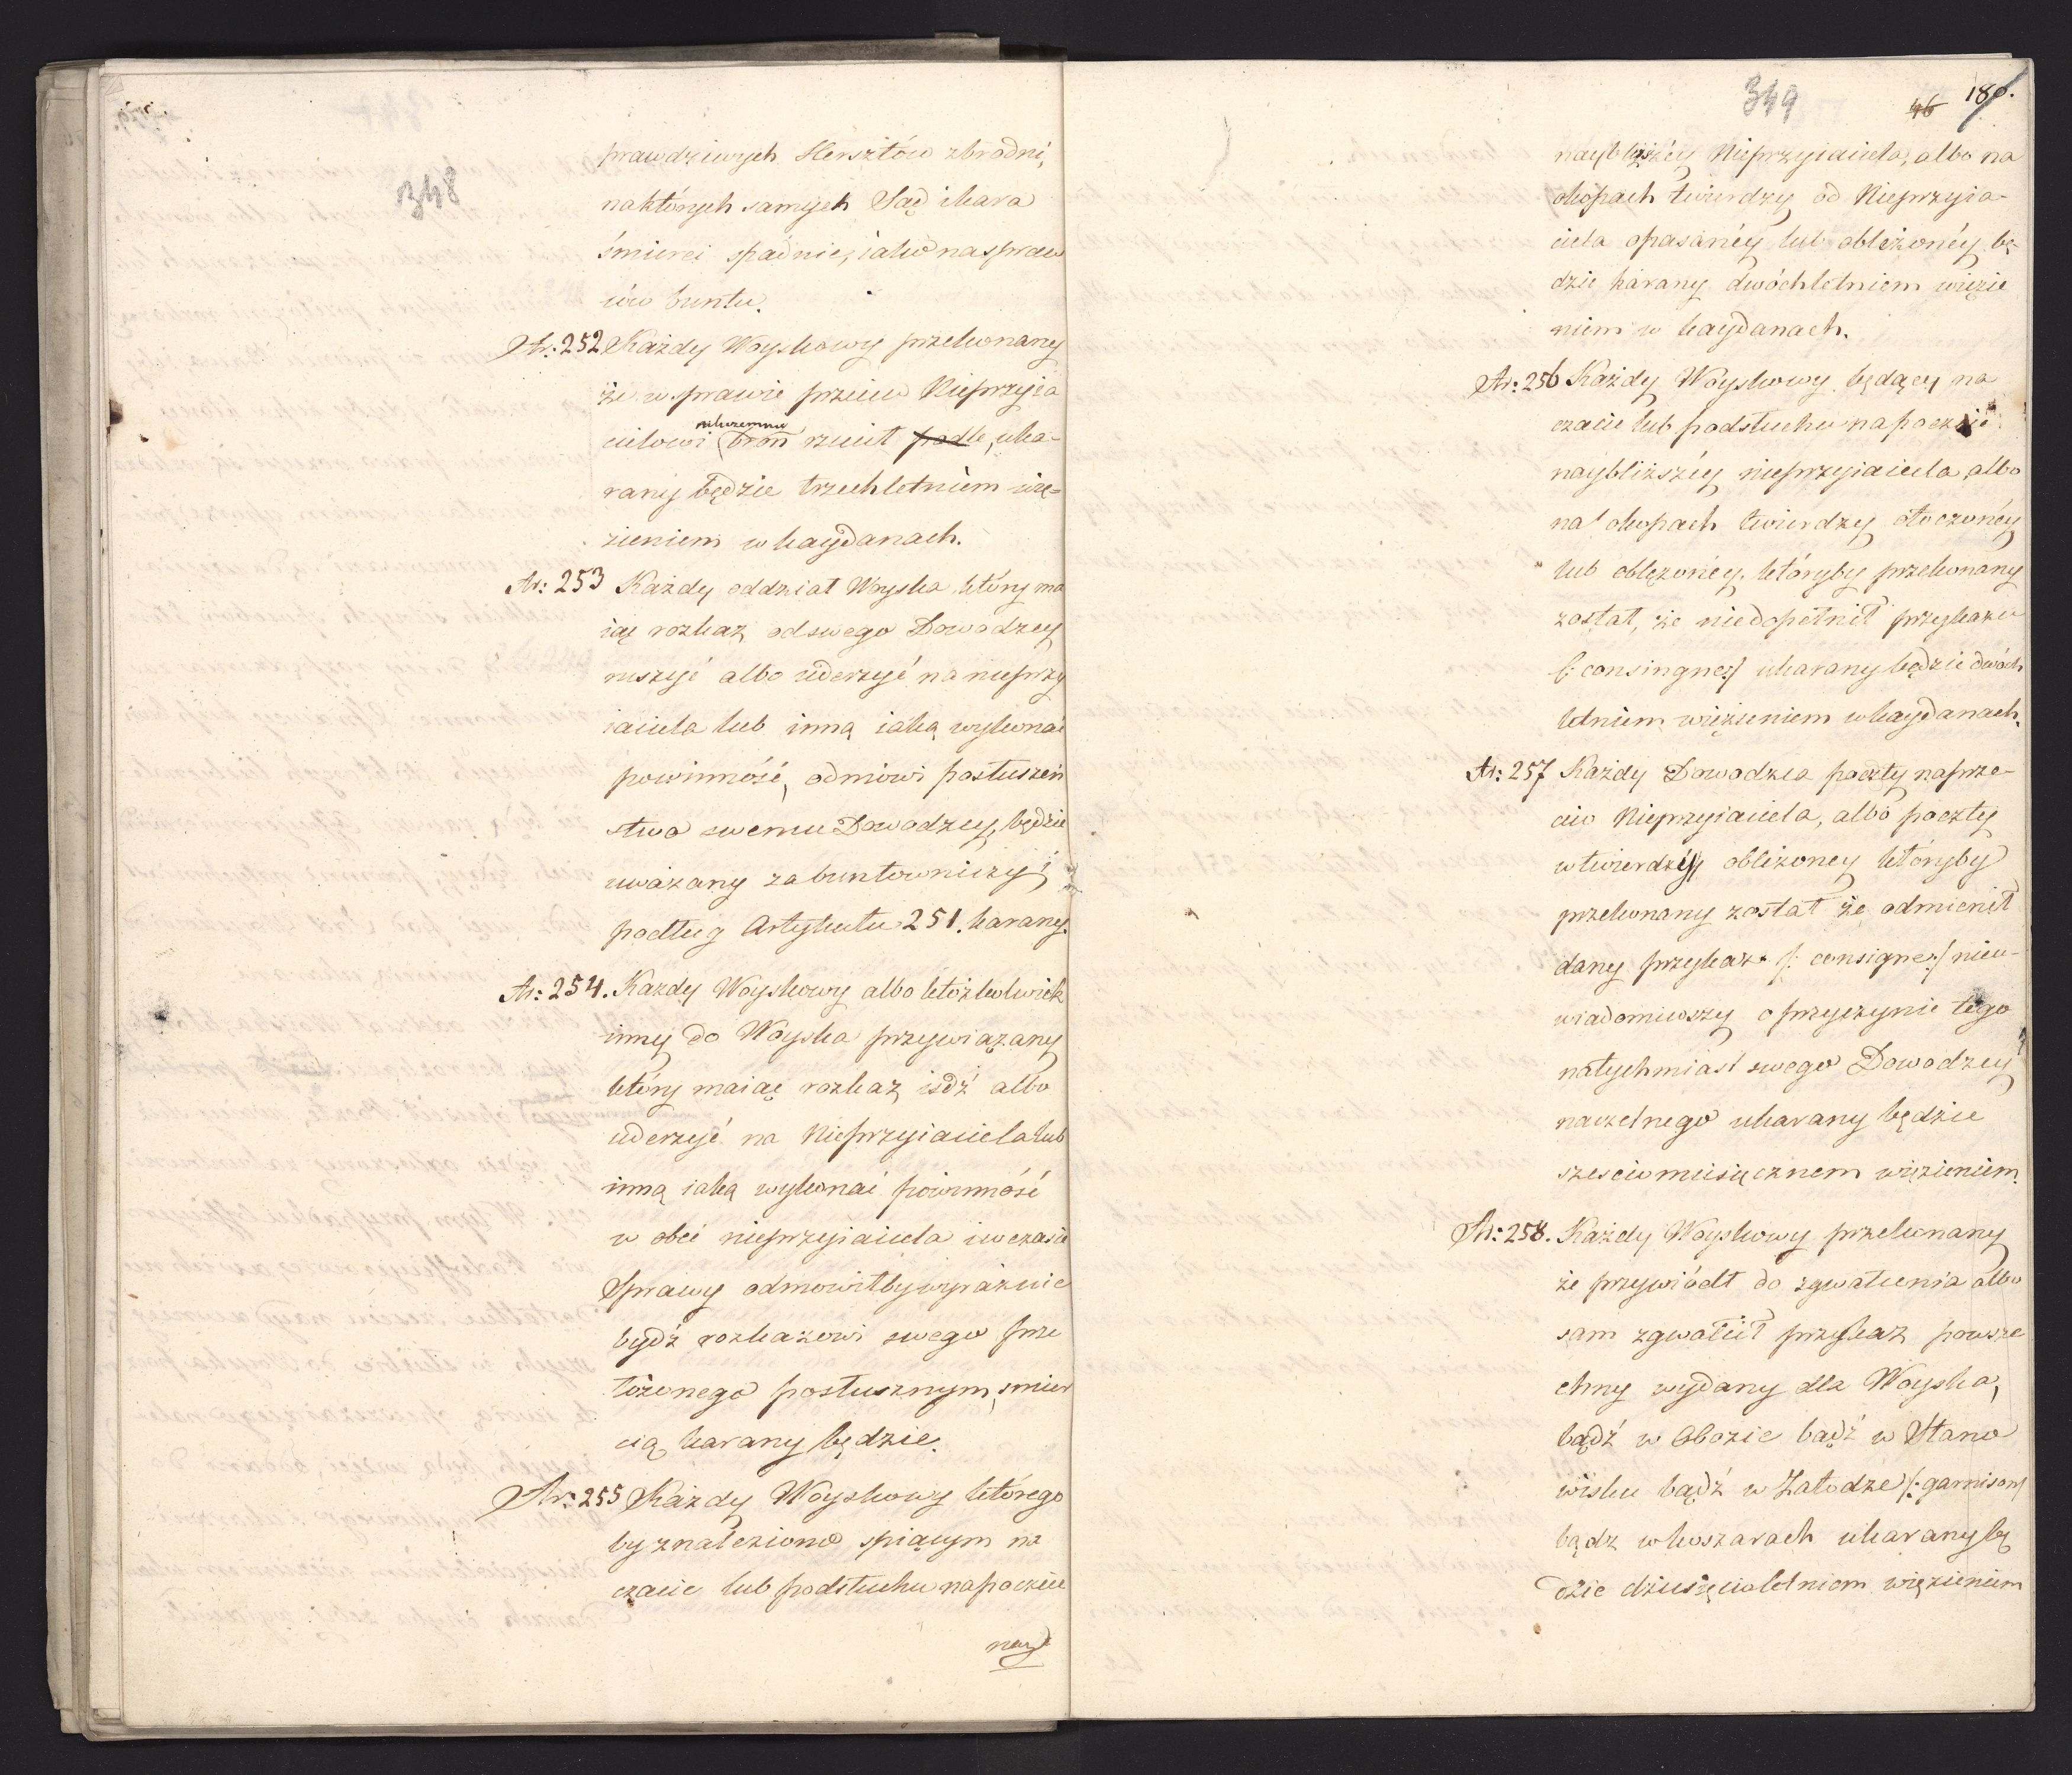 348
prawdziwych Hersztów zbrodni,
naktórych samych Sąd i kara
śmierci spadnie, iako na spraw
ców buntu.
Ar: 252 Każdy Woyskowy przekonany
że w sprawie przeciw Nieprzyia
cielowi nikczemnie broń rzucił podle, uka-
rany będzie trzechletniem wię-
zieniem w kaydanach.
Ar: 253 Każdy oddział Woyska, który ma
iąc rozkaz od swego Dowodzcy
ruszyć albo uderzyć na nieprzy
iaciela lub inną iaką wykonać
powinność, odmówi posłuszeń
stwa swemu Dowodzcy, będzie
uważany za buntowniczy i
podług Artykułu 251. karany.
Ar: 254. Kazdy Woyskowy albo ktożkolwiek
inny do Woyska przywiązany
który maiąc rozkaz iśdź albo
uderzyć na Nieprzyiaciela lub
inną iaką wykonać powinność
w obec nieprzyiaciela i w czasie
Sprawy odmowiłby wyraźnie
bydź rozkazowi swego prze
łożonego posłusznym, smier
cią karany będzie.
Ar: 255 Każdy Woyskowy którego
by znaleziono spiącym na
czacie lub podsłuchu na poczcie
nay
349
46 180.
naybliższéy Nieprzyiaciela, albo na
okopach twierdzy od Nieprzyia-
ciela opasanéy lub oblężonéy bę
dzie karany dwóchletniem więzie
niem w kaydanach.
Ar: 256 Każdy Woyskowy będący na
czacie lub podsłuchu na poczcie
naybliższéy nieprzyiaciela albo
na okopach twierdzy otoczonéy
lub oblężonéy, któryby przekonany
został, że niedopełnił przykazu
/: consingne:/ ukarany będzie dwóch
letniem więzieniem w kaydanach.
Ar: 257 Każdy Dowodzca poczty naprze-
ciw Nieprzyiaciela, albo poczty
w twierdzy oblężoney któryby
przekonany został że odmienił
dany przykaz /: consigne:/ nieu-
wiadomiwszy o przyczynie tego
natychmiast swego Dowodzcy
naczelnego ukarany będzie
szesciomiesięcznem więzieniem.
Ar: 258. Każdy Woyskowy przekonany
że przywiódł do zgwałcenia albo
sam zgwałcił przykaz powsze
chny wydany dla Woyska,
bądź w Obozie bądź w Stano
wisku bądź w Załodze /: garnison/
bądz w koszarach ukarany bę
dzie dziesięcioletniem więzieniem